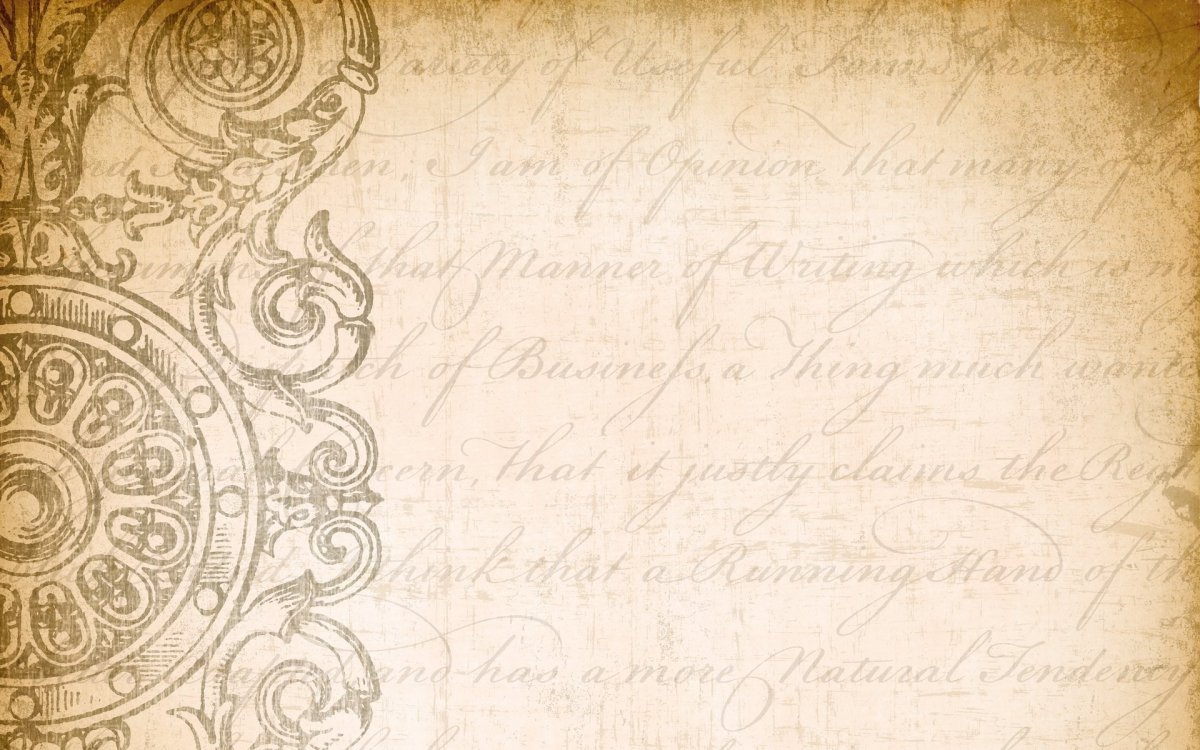 a Variety of Useful Forms practised
men, I am of Opinion that many of
that Manner of Writing which is
of Busineſs, a Thing much
that it justly claims the
think that a Running Hand of
and has a more Natural Tendency